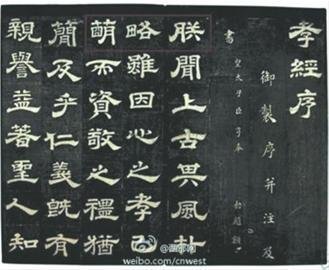 孝經序
御製序并注及
書 皇太子臣亨奉 勅題額
朕聞上古其風朴
略雖因心之孝已
萌而資敬之禮猶
簡及乎仁義既有
親譽益著聖人知
@西部网
weibo.com/cnwest